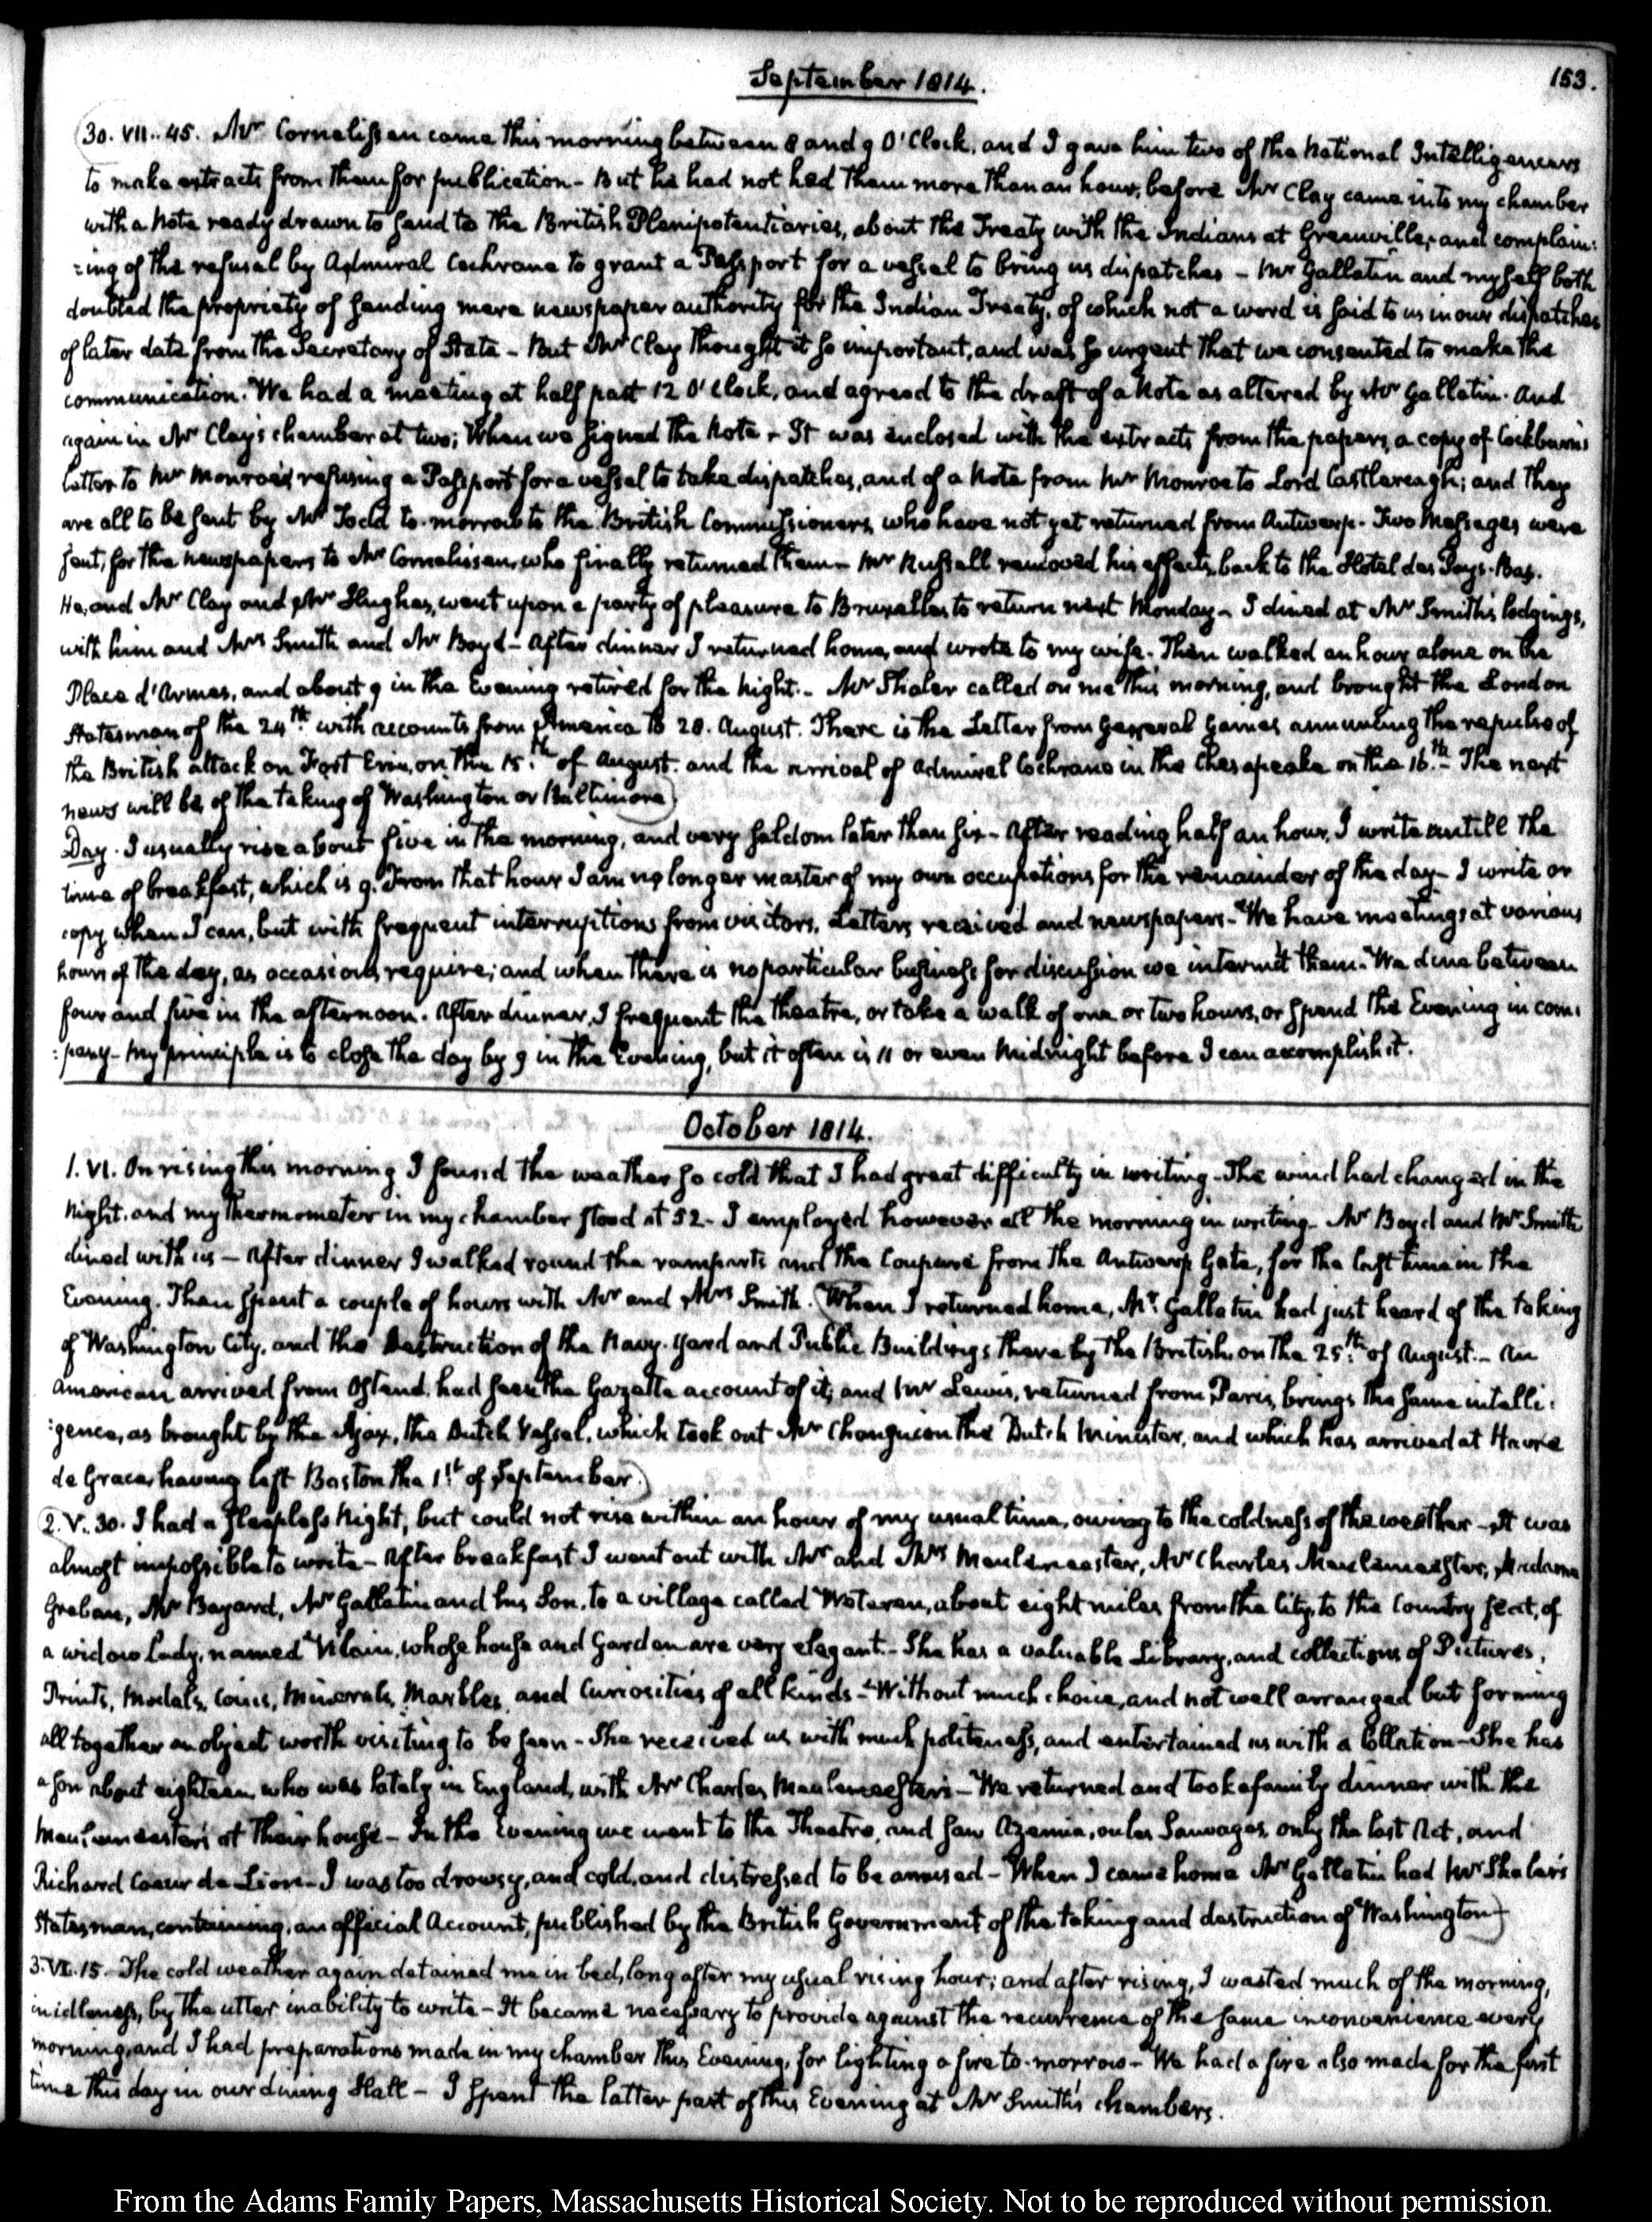 September 1814.
153.
30. VII..45. Mr Cornelissen came this morning between 8 and 9 O'Clock, and I gave him two of the National Intelligencers
to make extracts from them for publication - But he had not had them more than an hour, before Mr Clay came into my chamber
with a Note ready drawn to send to the British Plenipotentiaries, about the Treaty with the Indians at Greenville, and complain:
:ing of the refusal by Admiral Cochrane to grant a Passport for a vessel to bring us dispatches - Mr Gallatin and myself both
doubted the propriety of sending mere newspaper authority for the Indian Treaty, of which not a word is said to us in our dispatches
of later date from the Secretary of State - But Mr Clay thought it so important, and was so urgent that we consented to make the
communication. We had a meeting at half past 12 O'Clock, and agreed to the draft of a Note as altered by Mr Gallatin. And
again in Mr Clay's chamber at two; When we signed the Note - It was enclosed with the extracts from the papers, a copy of Cockburn's
letter to Mr Monroe, refusing a Passport for a vessel to take dispatches, and of a Note from Mr Monroe to Lord Castlereagh; and they
are all to be sent by Mr Todd to-morrow to the British Commissioners, who have not yet returned from Antwerp. Two Messages were
sent, for the newspapers to Mr Cornelissen, who finally returned them - Mr Russell removed his effects, back to the Hotel des Pays-Bas.
He, and Mr Clay and Mr Hughes, went upon a party of pleasure to Bruxelles to return next Monday - I dined at Mr Smith's lodgings,
with him and Mrs Smith and Mr Boyd - After dinner I returned home, and wrote to my wife. Then walked an hour alone on the
Place d'Armes, and about 9 in the Evening retired for the night. - Mr Shaler called on me this morning, and brought the London
Statesman of the 24th with accounts from America to 20. August. There is the Letter from General Gaines announcing the repulse of
the British attack on Fort Erie, on the 15th of August. and the arrival of Admiral Cochrane in the Chesapeake on the 16th - The next
news will be of the taking of Washington or Baltimore)
Day. I usually rise about five in the morning, and very seldom later than six - After reading half an hour, I write untill the
time of breakfast, which is 9. From that hour I am no longer master of my own occupations for the remainder of the day - I write or
copy when I can, but with frequent interruptions from visitors, Letters received and newspapers - We have meetings at various
hours of the day, as occasions require; and when there is no particular business for discussion we intermit them. We dine between
four and five in the afternoon. After dinner, I frequent the theatre, or take a walk of one or two hours, or spend the Evening in com:
:pany - My principle is to close the day by 9 in the Evening, but it often is 11 or even Midnight before I can accomplish it.
October 1814.
1. VI. On rising this morning I found the weather so cold that I had great difficulty in writing - The wind had changed in the
Night. and my Thermometer in my chamber stood at 52 - I employed however all the morning in writing - Mr Boyd and Mr Smith
dined with us - After dinner I walked round the ramparts and the Coupure from the Antwerp Gate, for the last time in the
Evening. Then spent a couple of hours with Mr and Mrs Smith. (When I returned home, Mr Gallatin had just heard of the taking
of Washington City, and the Destruction of the Navy-Yard and Public Buildings there by the British on the 25th of August. - An
American arrived from Ostend, had seen the Gazette account of it; and Mr Lewis, returned from Paris, brings the same intelli:
:gence, as brought by the Ajax, the Dutch Vessel, which took out Mr Changuion the Dutch Minister, and which has arrived at Havre
de Grace, having left Boston the 1st of September.)
(2. V. 30. I had a sleepless Night, but could not rise within an hour of my usual time, owing to the coldness of the weather - It was
almost impossible to write - After breakfast I went out with Mr and Mrs Meulemeester, Mr Charles Meulemeester, Madame
Greban, Mr Bayard, Mr Gallatin and his Son, to a village called Weteren, about eight miles from the City, to the Country seat, of
a widow Lady, named Vilain, whose house and Garden are very elegant. - She has a valuable Library, and collections of Pictures,
Prints, Medals, Coins, Minerals, Marbles, and Curiosities of all kinds - Without much choice, and not well arranged but forming
all together an object worth visiting to be seen - She received us with much politeness, and entertained us with a Collation - She has
a son about eighteen, who was lately in England, with Mr Charles Meulemeester - We returned and took a family dinner with the
Meulemeesters at their house - In the Evening we went to the Theatre, and saw Azemia, ou les Sauvages, only the last Act, and
Richard Coeur de Lion - I was too drowsy, and cold, and distressed to be amused - When I came home Mr Gallatin had Mr Shaler's
Statesman, containing, an official Account, published by the British Government of the taking and destruction of Washington)
3. VI. 15. The cold weather again detained me in bed, long after my usual rising hour; and after rising, I wasted much of the morning,
in idleness, by the utter inability to write - It became necessary to provide against the recurrence of the same inconvenience every
morning, and I had preparations made in my chamber this Evening, for lighting a fire to-morrow - We had a fire also made for the first
time this day in our dining Hall - I spent the latter part of this Evening at Mr Smith's chambers.
From the Adams Family Papers, Massachusetts Historical Society. Not to be reproduced without permission.